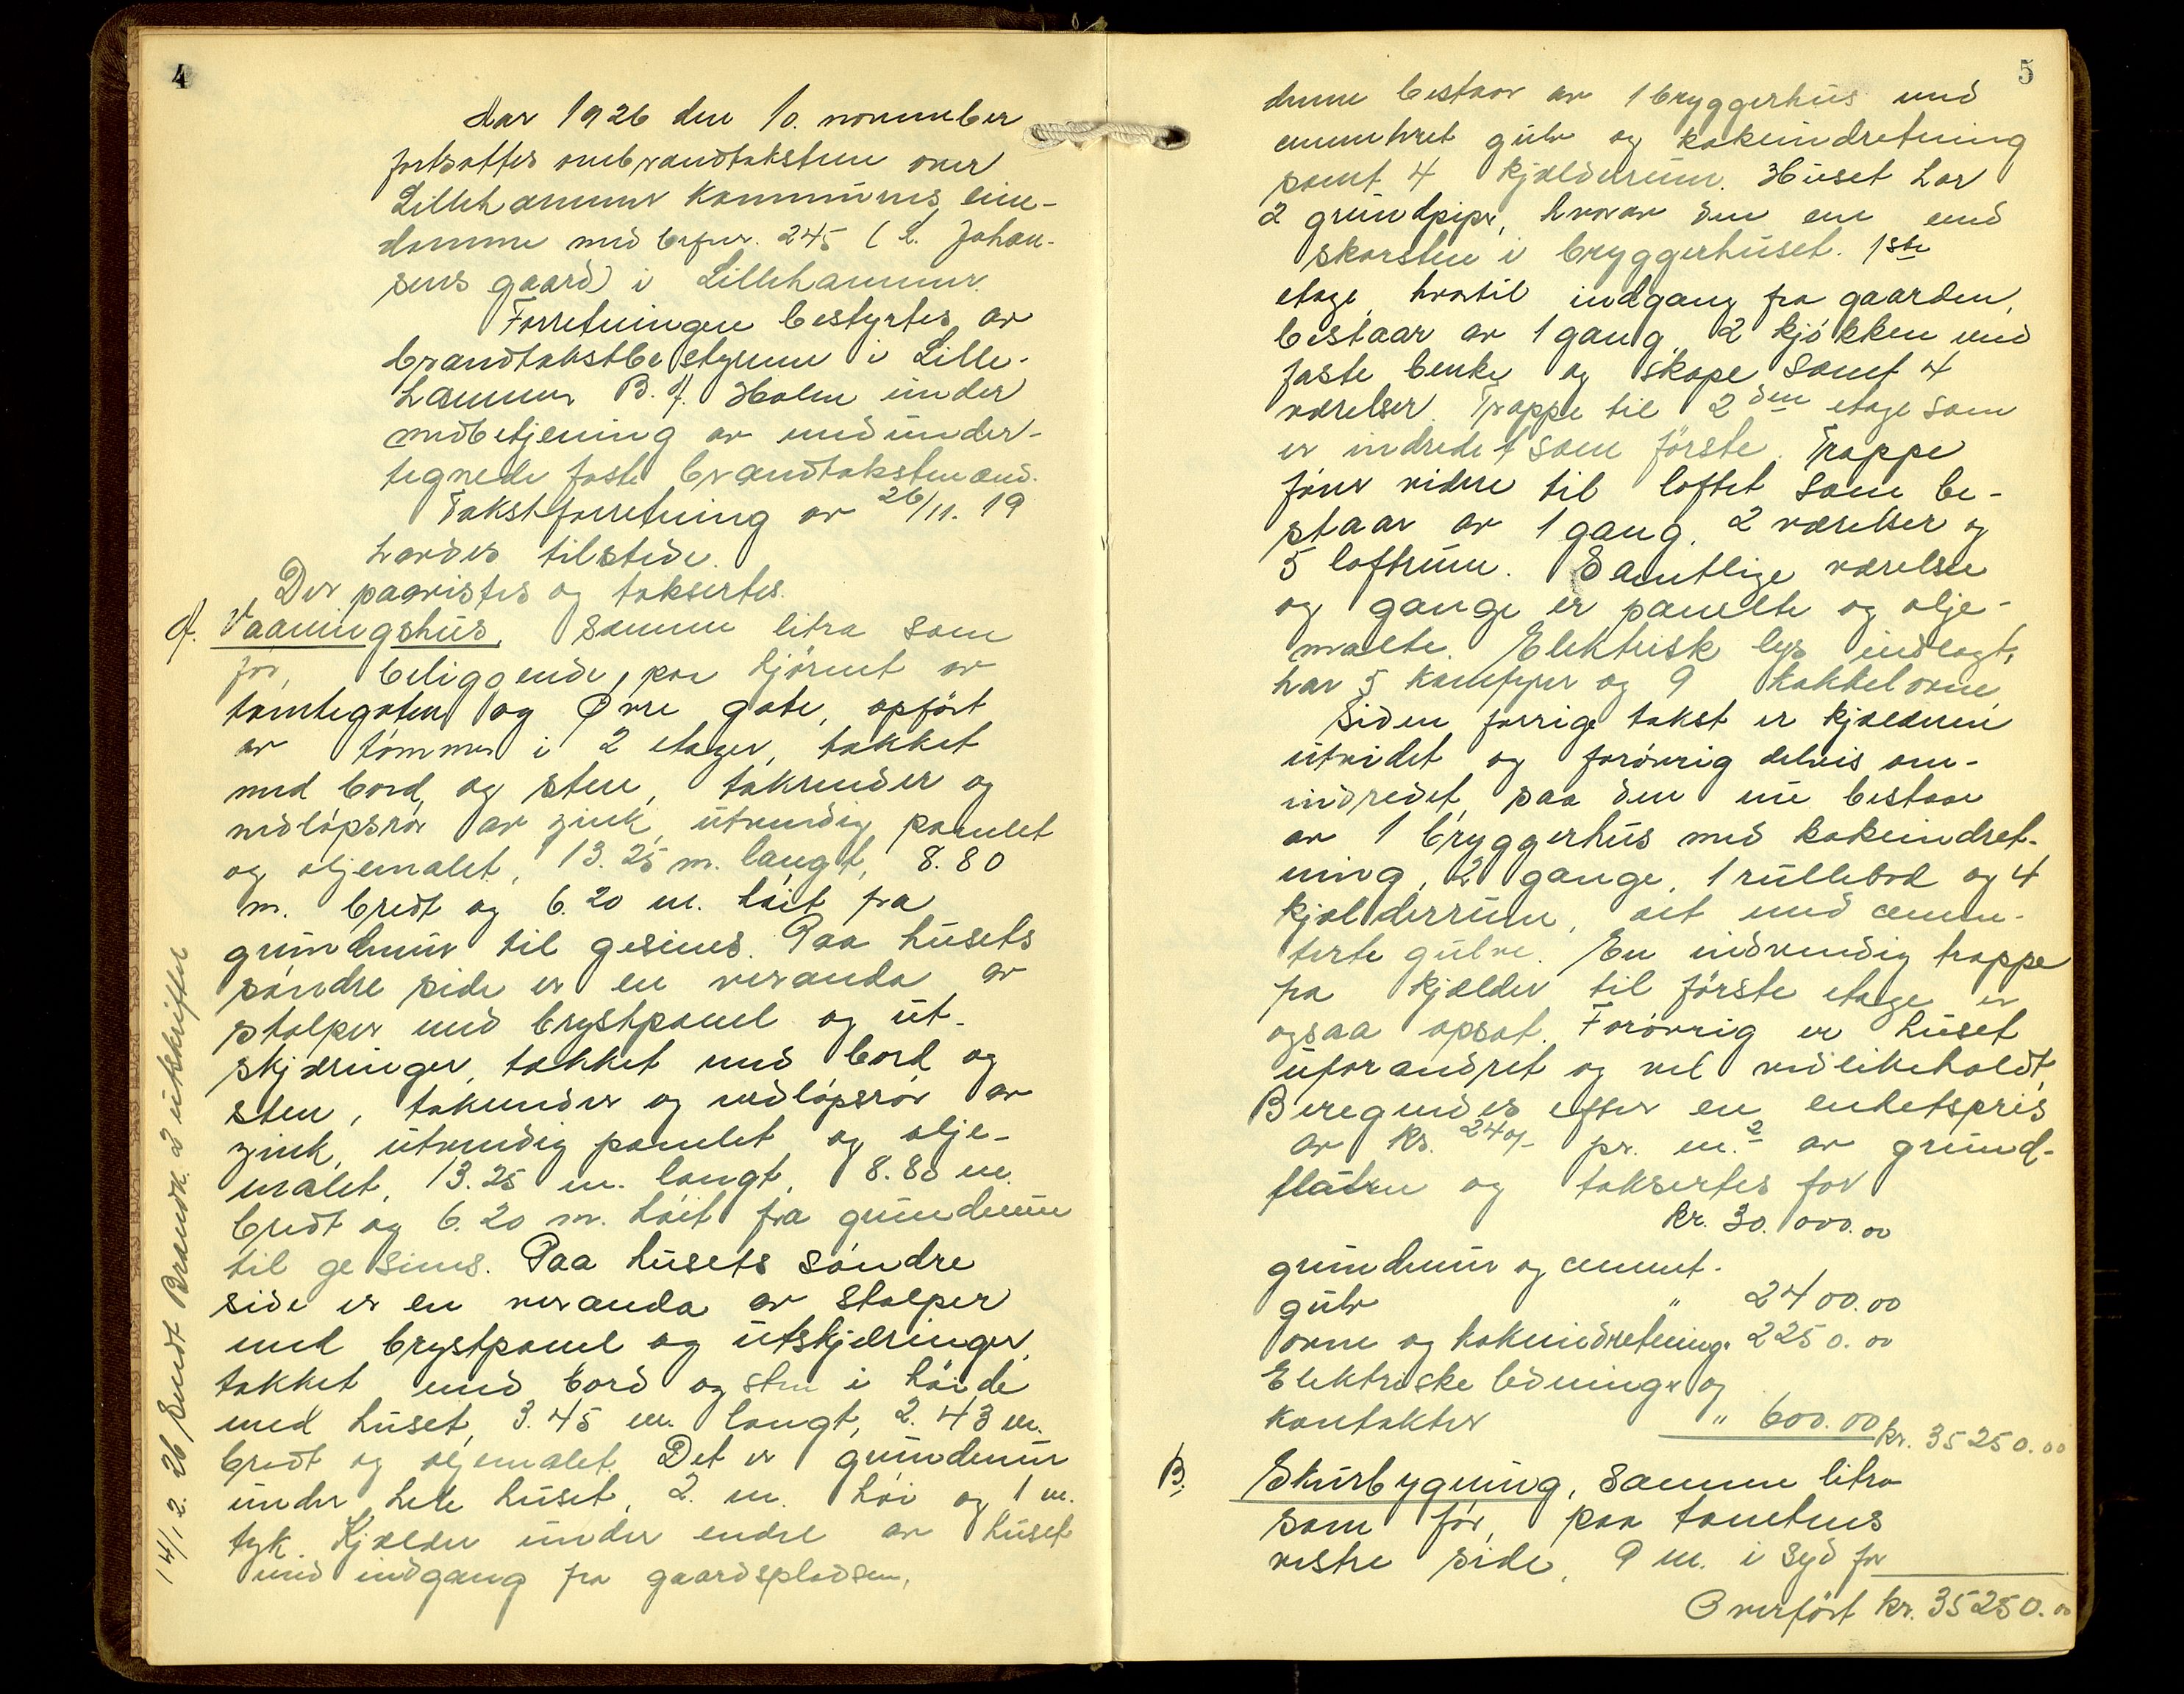 4
Aar 1926 den 10. november
fortsattes ombrandtaksten over
Lillehammer Kommunes eien-
domme med brfnr. 245 (L. Johan-
sens gaard) i Lillehammer.
Forretningen bestyrtes av
brandtakstbestyreren i Lille-
hammer B. A. Holm under
medbetjening av medunder-
tegnede faste brandtakstmænd.
Takstforretning av 26/11. 19
havdes tilstede.
Der paavistes og taksertes.
A. Vaaningshus, samme litra som
før, beliggende paa hjørnet av
tomtegaten og Øvre gate, opført
av tømmer i 2 etager, tækket
med bord og sten, takrender og
nedløpsrør av zink, utvendig panelet
og oljemalet, 13.25 m. langt, 8.80
m. bredt og 6.20 m. høit fra
grundmur til gesims. Paa husets
søndre side er en veranda av
stolper med brystpanel og ut-
skjæringer, tækket med bord og
sten, takrender og nedløpsrør av
zink, utvendig panelet og olje-
malet, 13.25 m. langt, 8.80 m.
bredt og 6.20 m. høit fra grundmur
til gesims. Paa husets søndre
side er en veranda av stolper
med brystpanel og utskjæringer,
tækket med bord og sten i høide
med huset, 3.45 m. langt, 2.43 m.
bredt og oljemalet. Det er grundmur
under hele huset, 2. m. høi og 1 m.
tyk. Kjælder under endel av huset
med indgang fra gaardspladsen,
14/12. 26 Sendt Brandk. 2 utskrifter
5
denne bestaar av 1 bryggerhus med
cementeret gulv og kokeindretning
samt 4 kjælderrum. Huset har
2 grundpiper, hvorav den ene med
skorsten i bryggerhuset. 1ste
etage, hvortil indgang fra gaarden,
bestaar av 1 gang, 2 kjøkken med
faste benke og skape samt 4
værelser. Trappe til 2den etage som
er indredet som første. Trappe
fører videre til loftet som be-
staar av 1 gang, 2 værelser og
5 loftrum. Samtlige værelser
og gange er panelte og olje-
malte. Elektrisk lys indlagt,
har 5 komfyrer og 9 kakkelovne.
Siden forrige takst er kjælderen
utvidet og forøvrig delvis om-
indredet, saa den nu bestaar
av 1 bryggerhus med kokeindret-
ning, 2 gange, 1 rullebod og 4
kjælderrum, alt med cemen-
terte gulve. En indvendig trappe
fra kjælder til første etage er
ogsaa opsat. Forøvrig er huset
uforandret og vel vedlikeholdt.
Beregnedes efter en enhetspris
av kr. 240/- pr. m.2 av grund-
flaten og taksertes for
kr. 30.000.00
grundmur og cement-
gulv " 2400.00
ovne og kokeindretning " 2250.00
Elektriske ledninger og
kontakter " 600.00 kr. 35250.00
B. Skurbygning, samme litra
som før, paa tomtens
vestre side, 9 m. i syd for
Overført kr. 35250.00